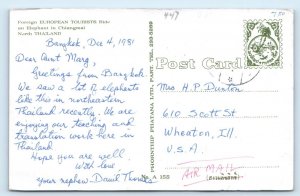 Foreign EUROPEAN TOURISTS Ride
on Elephant in Chiangmai
North THAILAND
447
7.50
Bangkok, Dec 4, 1981
Dear Aunt Marg,
Greetings from Bangkok.
We saw a lot of elephants
like this in northeastern
Thailand recently. We are
enjoying our teaching and
translation work here in
Thailand.
Hope you are well.
With love
your nephew, David Thomas
Post Card
Mrs H. P. Dunton
610 Scott St
Wheaton, Ill.
U.S.A.
AIR MAIL
No. A 155